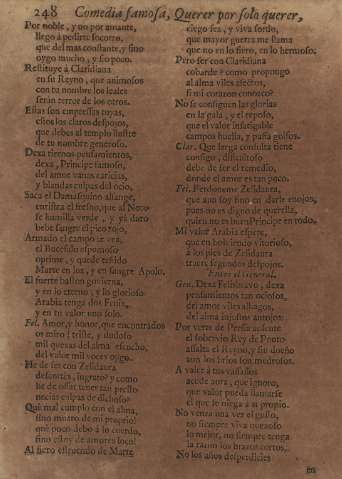 248 Comedia famosa, Querer por solo querer,
Por noble, y no por amante,
llego a pedirte socorro,
que del mas constante, y fino
oygo mucho, y fio poco.
Restituye à Claridiana
en su Reyno, que animosos
con tu nombre los leales
serán terror de los otros.
Estas son empressas tuyas,
estos los claros despojos,
que debes al templo ilustre
de tu nombre generoso.
Dexa tiernos pensamientos,
dexa, Principe famoso,
del amor vanas caricias,
y blandas culpas del ocio,
Saca el Damasquino alfange,
se humilla verde, y ya daro
bebe sangre el pico rojo.
Armado el campo te vea,
el Bucefalo espumoso
oprime, y quede teñido
Marte en los, y en sangre Apolo.
El fuerte baston govierna,
y en lo eterno, y lo glorioso
Arabia tenga dos Fenix,
y en tu valor uno solo.
Fel. Amor, y honor, que encontrados
os miro! triste, y dudoso
mil quexas del alma escucho,
del valor mil voces oygo.
He de ser con Zelidaura
descortès, ingrato? y como
he de ossar tener tan presto
necias culpas de dichoso?
Què mal cumplo con el alma,
sino muero de mi proprio!
què poco debo à lo cuerdo,
sino estoy de amores loco!
Al fiero estruendo de Marte
ciego sea, y viva sordo,
que mayor guerra me llama
que no en lo fiero, en lo hermoso;
Pero ser con Claridiana
cobarde? como propongo
al alma viles afectos,
si mi corazon conozco?
No se consiguen las glorias
en la gala, y el reposo,
que el valor infatigable
campos huella, y passa golfos.
Clar. Que larga consulta tiene
consigo, dificultoso
debe de ser el remedio,
donde el amor es tan poco.
Fel. Perdoneme Zelidaura,
que aun soy fino en darle enojos,
pues no es digno de quererla,
quien no es buen Principe en todo.
Mi valor Arabia espere,
que en bolviendo vitorioso,
à los pies de Zelidaura
traere segundos despojos.
Entra el General.
Gen. Dexa Felisbravo, dexa
pensamientos tan ociosos,
del amor viles alhagos,
del alma injustos antojos:
Por verte de Persia ausente
el sobervio Rey de Ponto
assalta el Reyno, y sin dueño
aun los brios son medrosos.
A valer à tus vassallos
acede aora, que ignoro,
que valor pueda llamarse
el que lo niega à si propio.
No venza una vez el gusto,
no siempre viva quexoso
lo mejor, no siempre tenga
la razon los brazos cortos.
No los años desperdicies
en